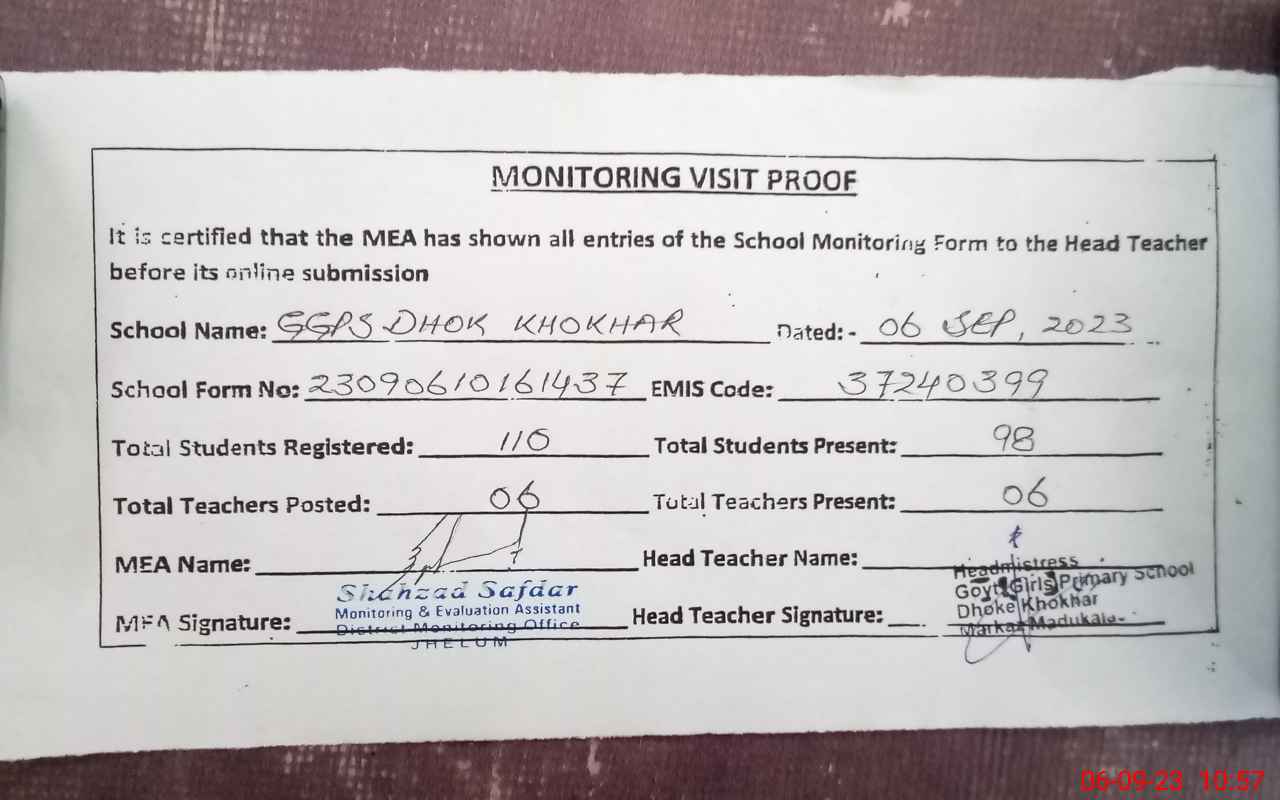 MONITORING VISIT PROOF
It is certified that the MEA has shown all entries of the School Monitoring Form to the Head Teacher
before its online submission
School Name: GGPS DHOK KHOKHAR Dated: - 06 SEP, 2023
School Form No: 23090610161437 EMIS Code: 37240399
Total Students Registered: 110 Total Students Present: 98
Total Teachers Posted: 06 Total Teachers Present: 06
MEA Name: Head Teacher Name:
Shahzad Safdar
Monitoring & Evaluation Assistant
District Monitoring Office
JHELUM
Headmistress
Govt Girls Primary School
Dhoke Khokhar
Markaz Madukals
MEA Signature: Head Teacher Signature:
06-09-23 10:57